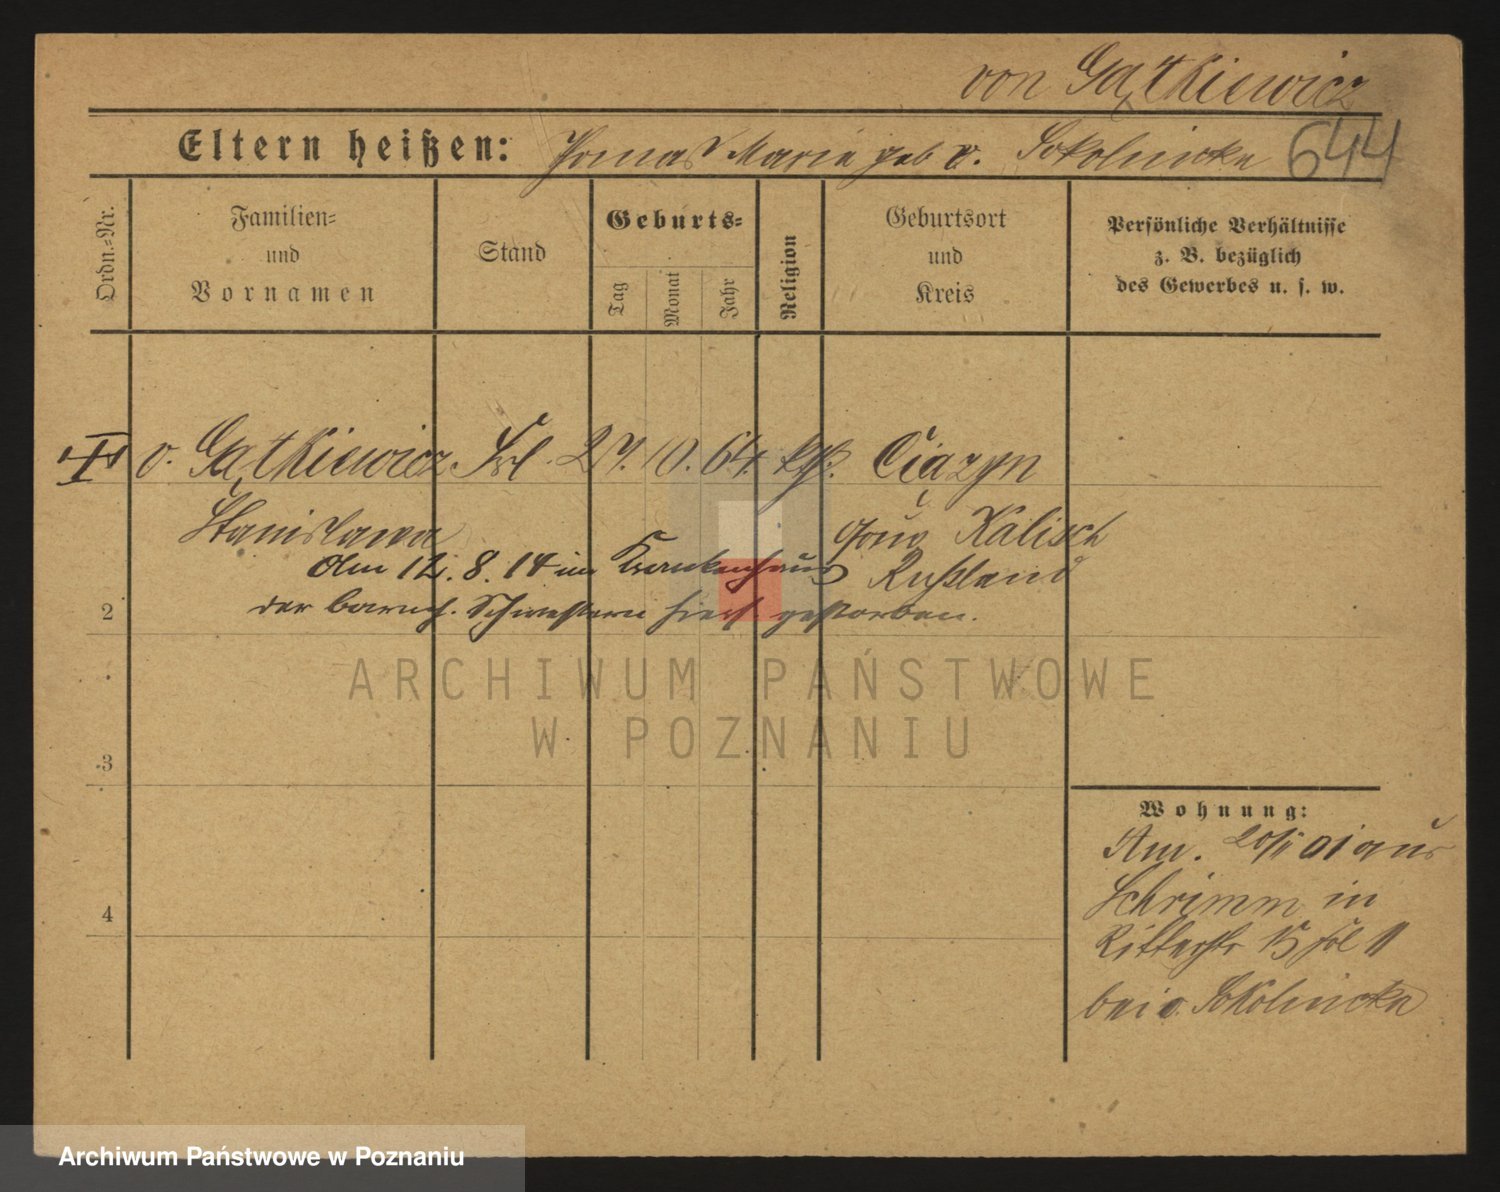 von Gątkiewicz
Eltern heißen: Thomas Marie geb v. Sokolnicka
644
Ordn.-Nr.
Familien-
und
Vornamen
Stand
Geburts-
Tag
Monat
Jahr
Religion
Geburtsort
und
Kreis
Persönliche Verhältnisse
z. B. bezüglich
des Gewerbes u. s. w.
v. Gątkiewicz Frl 27. 10. 64. kth. Ciązyn
Stanislawa Gouv Kalisch
Rußland
Am 12. 8. 14 im Krankenhaus
2 der barmh. Schwestern hier gestorben.
3
4
Wohnung:
Am. 20/ 01 aus
Schrimm in
Ritterstr 15
bei v. Sokolnicka
ARCHIWUM PAŃSTWOWE
W POZNANIU
Archiwum Państwowe w Poznaniu